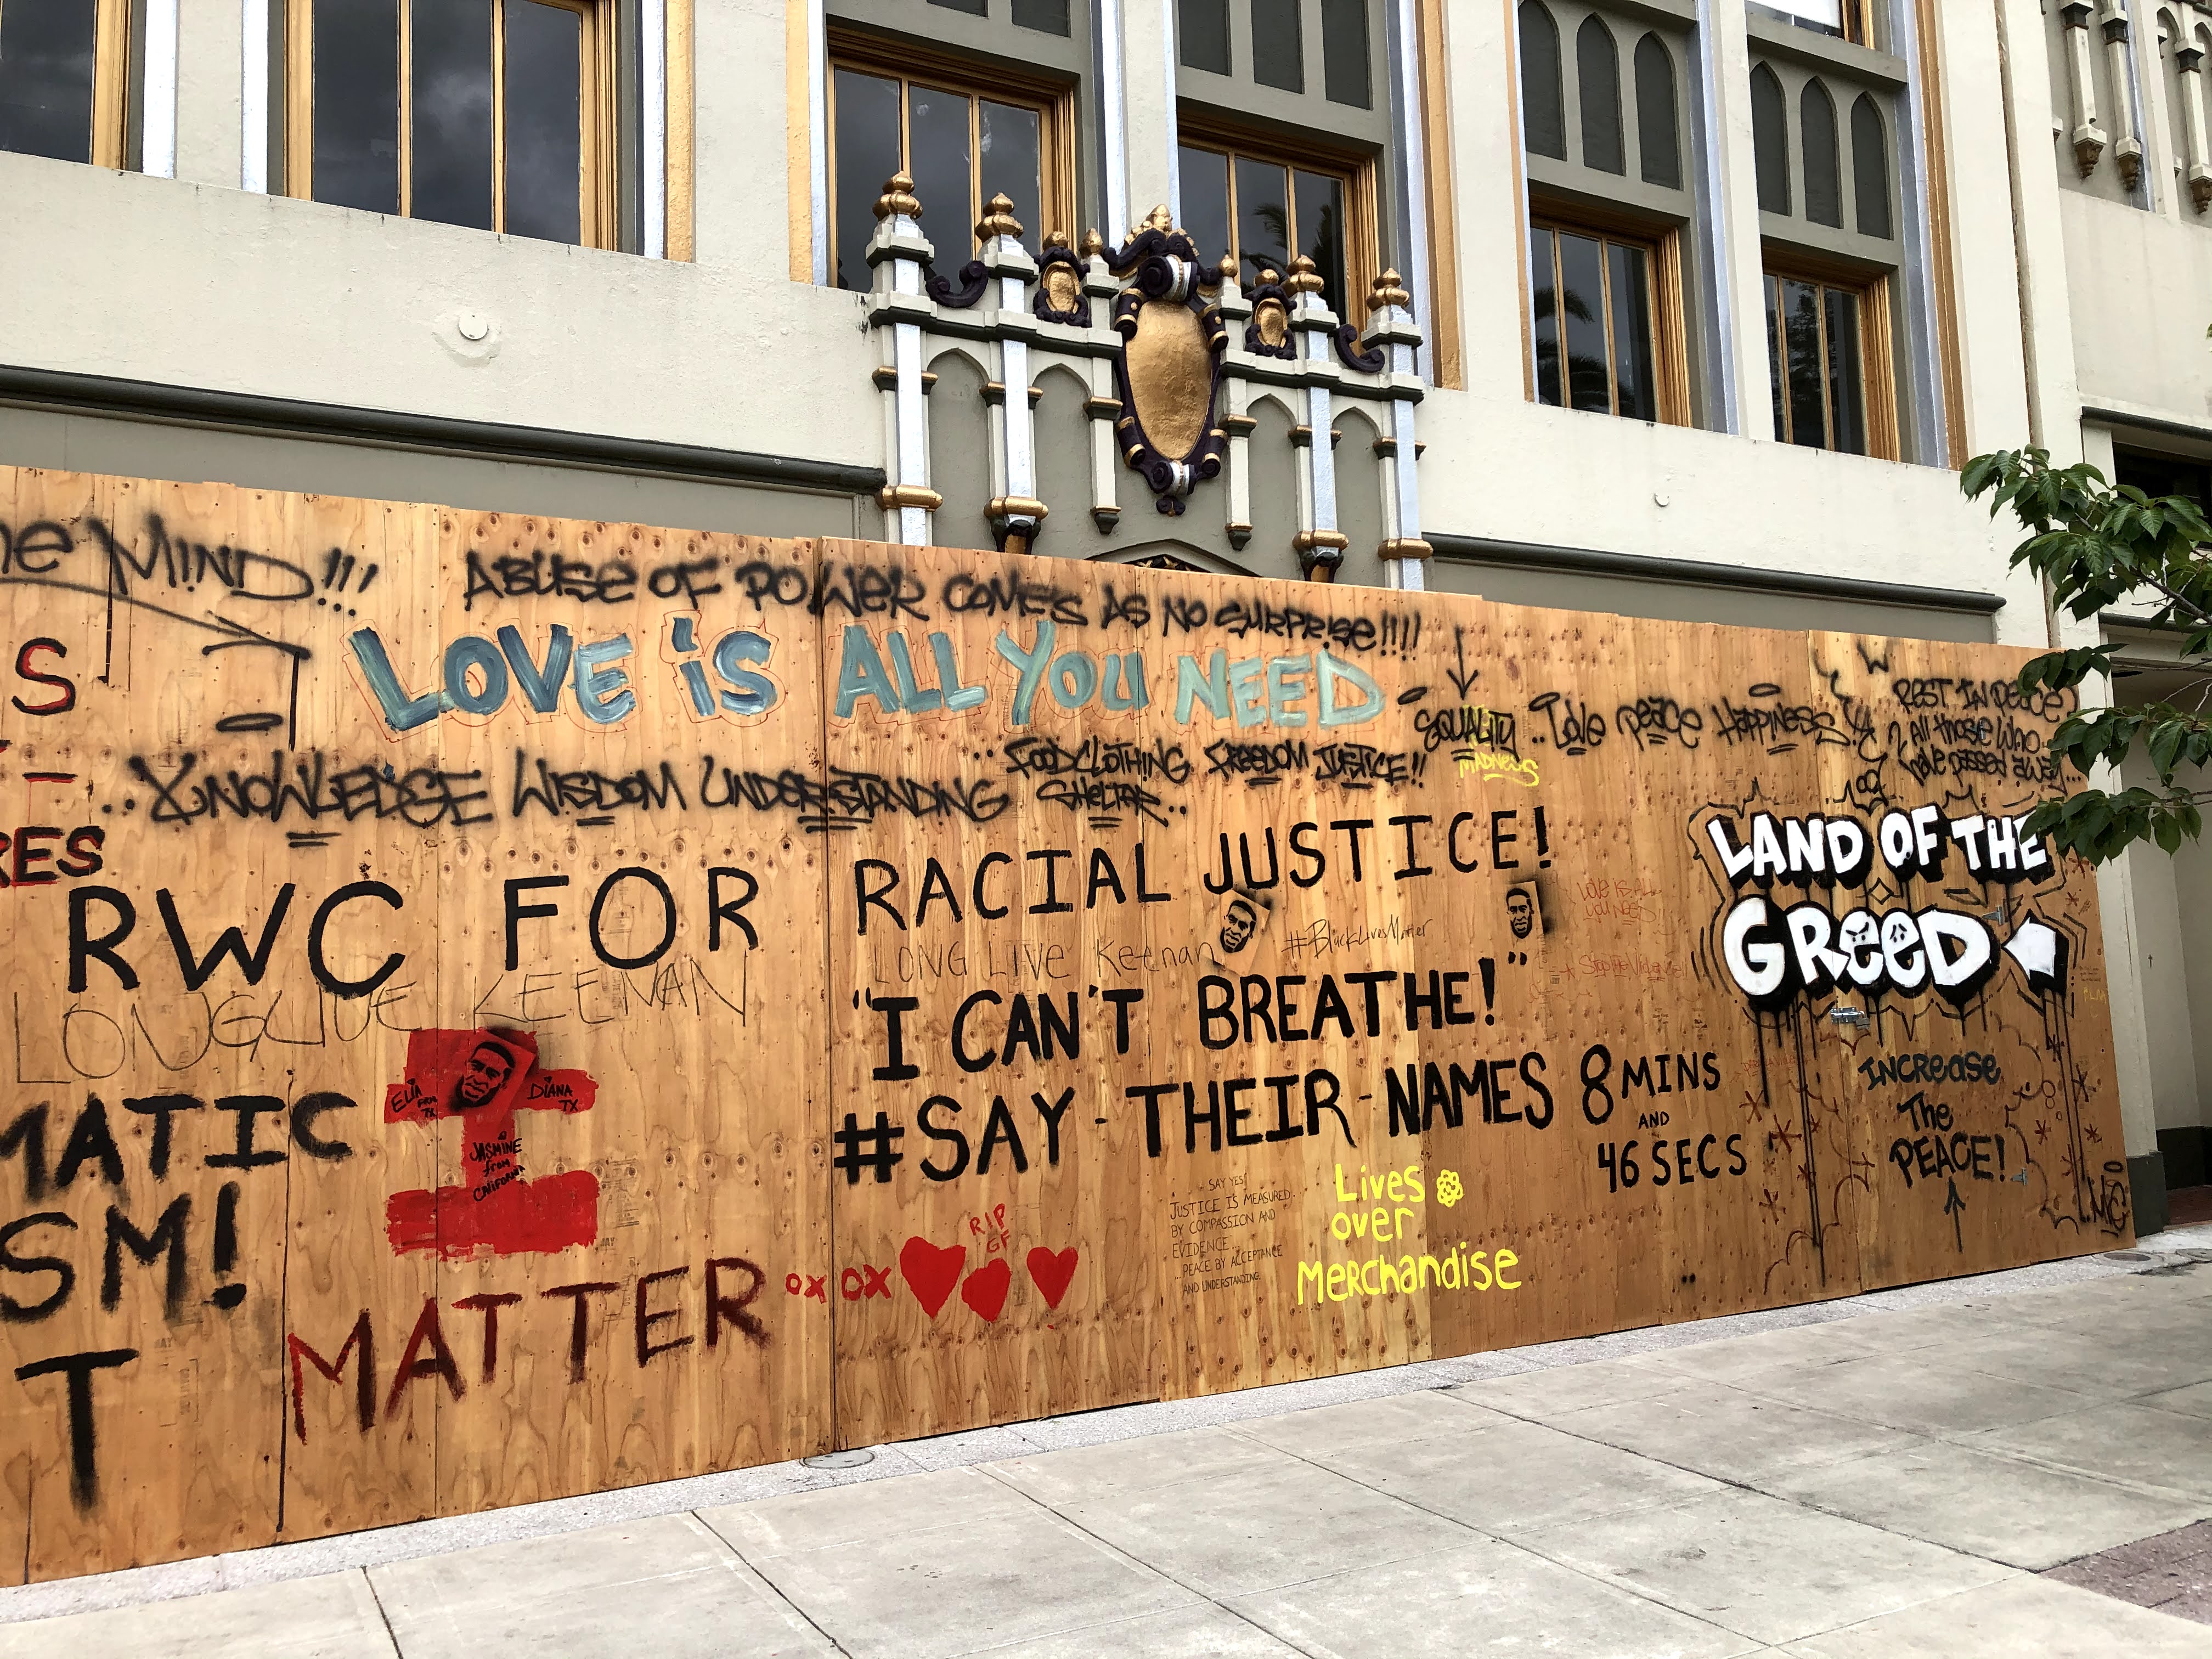 he MIND!!!
ABUSE OF POWER COMES AS NO SURPRISE!!!!
LOVE iS ALL YOU NEED
S
EQUALITY .. Love Peace Happiness
REST IN PEACE
2 All those who
have passed away...
.. KNOWLEDGE WISDOM UNDERSTANDING
.. FOOD CLOTHING
SHELTER ..
FREEDOM JUSTICE!!
MADNESS
RES
RWC FOR RACIAL JUSTICE!
LAND OF THE
GREED
LOVE IS ALL
YOU NEED
LONG LIVE KEENAN
LONG LIVE Keenan
#BlackLivesMatter
"I CAN'T BREATHE!"
#SAY-THEIR-NAMES 8 MINS
AND
46 SECS
INCREASE
The
PEACE!
MATIC
SM!
T
ELIA
FROM
TX
DIANA
TX
JASMINE
from
CALIFORNIA
MATTER
OX OX
RIP
GF
SAY YES!
JUSTICE IS MEASURED
BY COMPASSION AND
EVIDENCE...
...PEACE BY ACCEPTANCE
AND UNDERSTANDING.
Lives
over
Merchandise